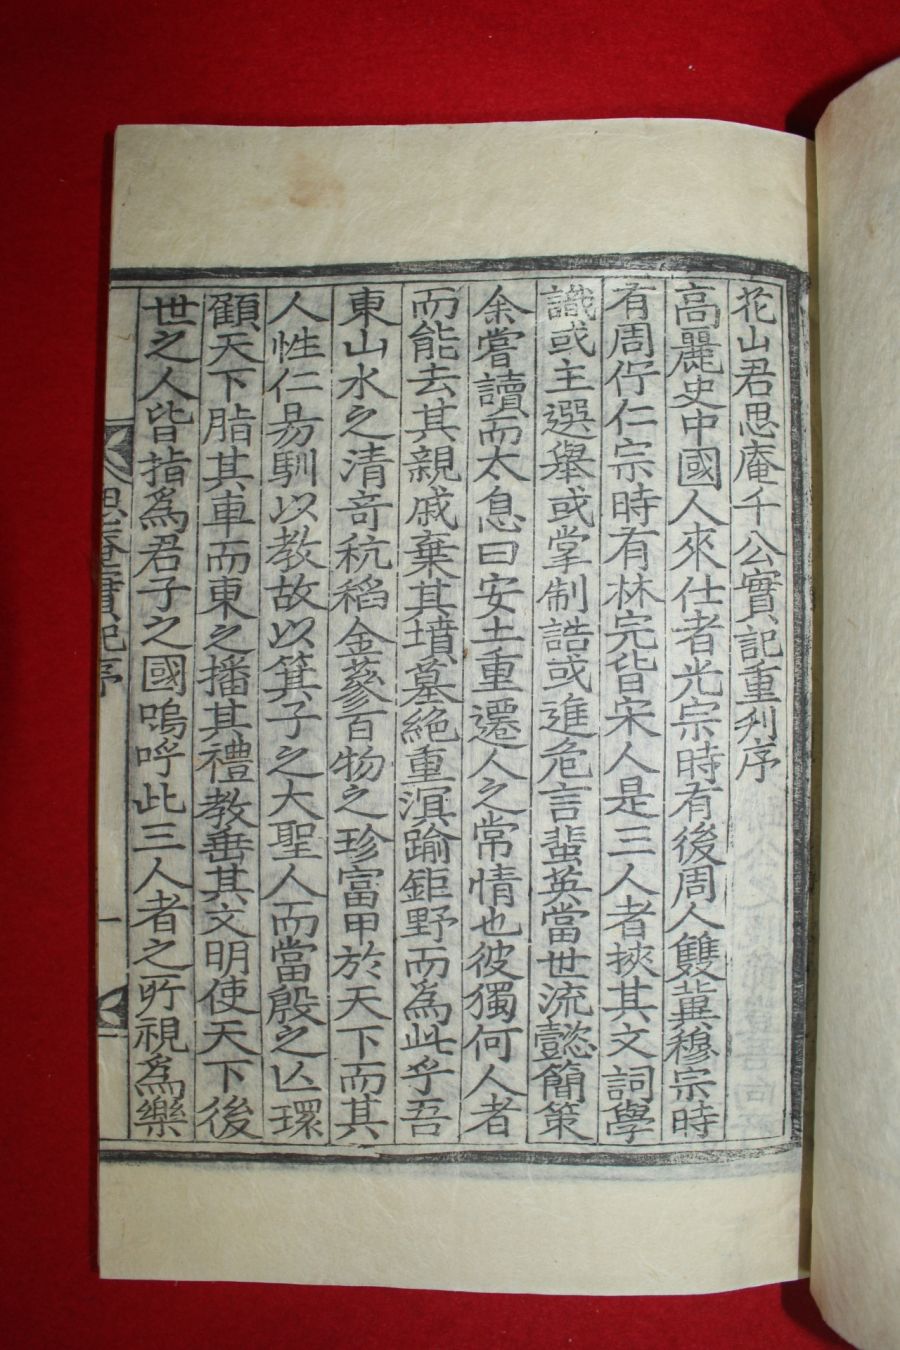 花山君思庵千公實記重刋序
高麗史中國人來仕者光宗時有後周人雙冀穆宗時
有周佇仁宗時有林完皆宋人是三人者挾其文詞學
識或主選舉或掌制誥或進危言蜚英當世流懿簡策
余嘗讀而太息曰安土重遷人之常情也彼獨何人者
而能去其親戚棄其墳墓絶重溟踰鉅野而為此乎吾
東山水之清竒秔稻金蔘百物之珍富甲於天下而其
人性仁易馴以教故以箕子之大聖人而當殷之亾環
顧天下脂其車而東之播其禮教垂其文明使天下後
世之人皆指為君子之國嗚呼此三人者之所視為樂
思庵實記序
一